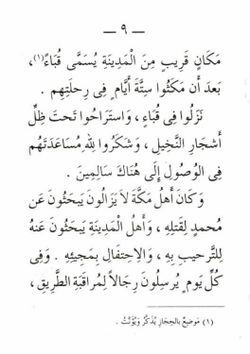 — ٩ —
مَكَانٍ قَرِيبٍ مِنَ الْمَدِينَةِ يُسَمَّى قُبَاءً(١)،
بَعدَ أَن مَكَثُوا سِتَّةَ أَيَّامٍ فِى رِحلَتِهِم .
نَزَلُوا فِى قُبَاء ، وَاستَرَاحُوا تَحتَ ظِلِّ
أَشجَارِ النَّخِيلِ ، وَشَكَرُوا للهِ مُسَاعَدَتَهُم
فِى الوُصُولِ إِلَى هُنَاكَ سَالِمِينَ .
وَكَانَ أَهلُ مَكَّةَ لاَ يَزَالُونَ يَبحَثُونَ عَن
مُحمدٍ لِقَتلِهِ ، وَأَهلُ المَدِينَةِ يَبحَثُونَ عَنهُ
لِلتَّرحِيبِ بِهِ ، وَالاِحتِفَالِ بِمَجِيئِهِ . وَفِى
كُلِّ يَومٍ يُرسِلُونَ رِجَالاً لِمُرَاقَبَةِ الطَّرِيقِ ،
(١) مَوضِعٌ بالحِجَازِ يُذكَّرُ وَيُؤَنَّثُ .